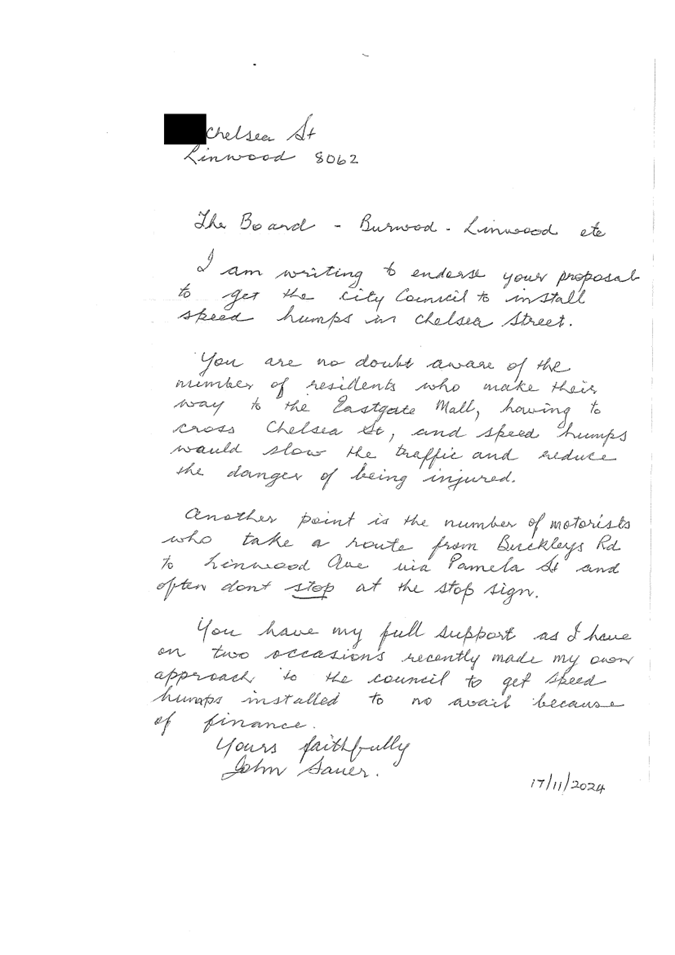 Chelsea St
Linwood 8062
The Board - Burwod - Linwood etc
I am writing to endorse your proposal
to get the city Council to install
speed humps in Chelsea Street.
You are no doubt aware of the
number of residents who make their
way to the Eastgate Mall, having to
cross Chelsea St, and speed humps
would slow the traffic and reduce
the danger of being injured.
Another point is the number of motorists
who take a route from Buckleys Rd
to Linwood Ave via Pamela St and
often dont stop at the stop sign.
You have my full support as I have
on two occasions recently made my own
approach to the council to get speed
humps installed to no avail because
of finance.
Yours faithfully
John Sauer.
17/11/2024